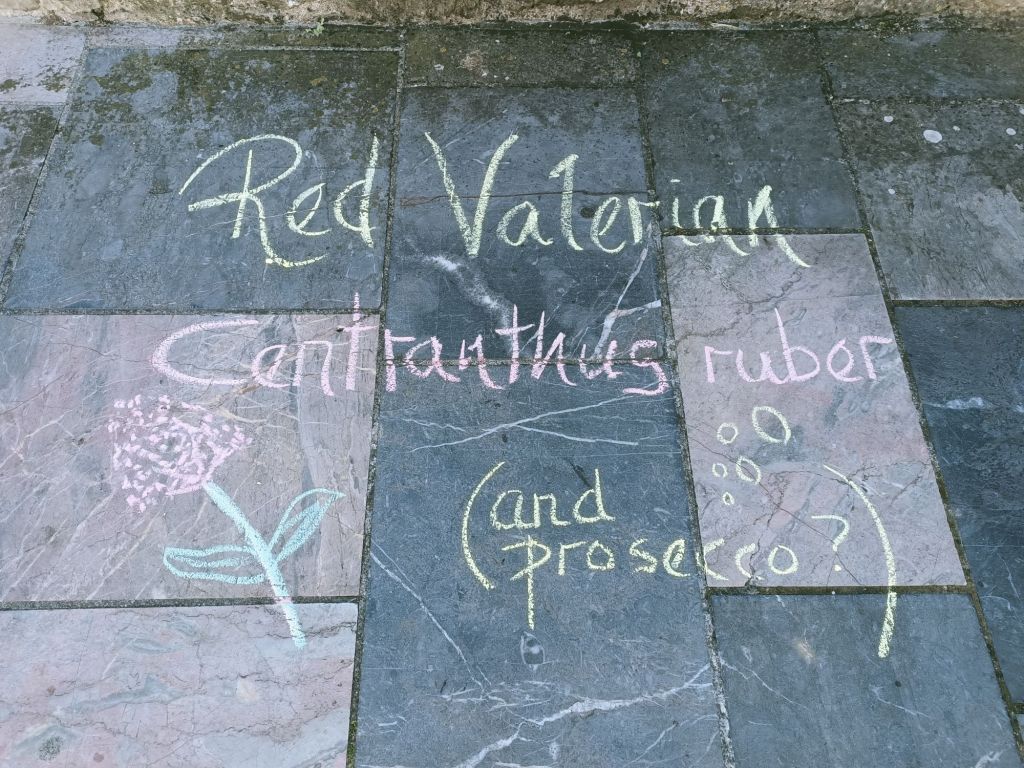 Red Valerian
Centranthus ruber
(and
prosecco?)